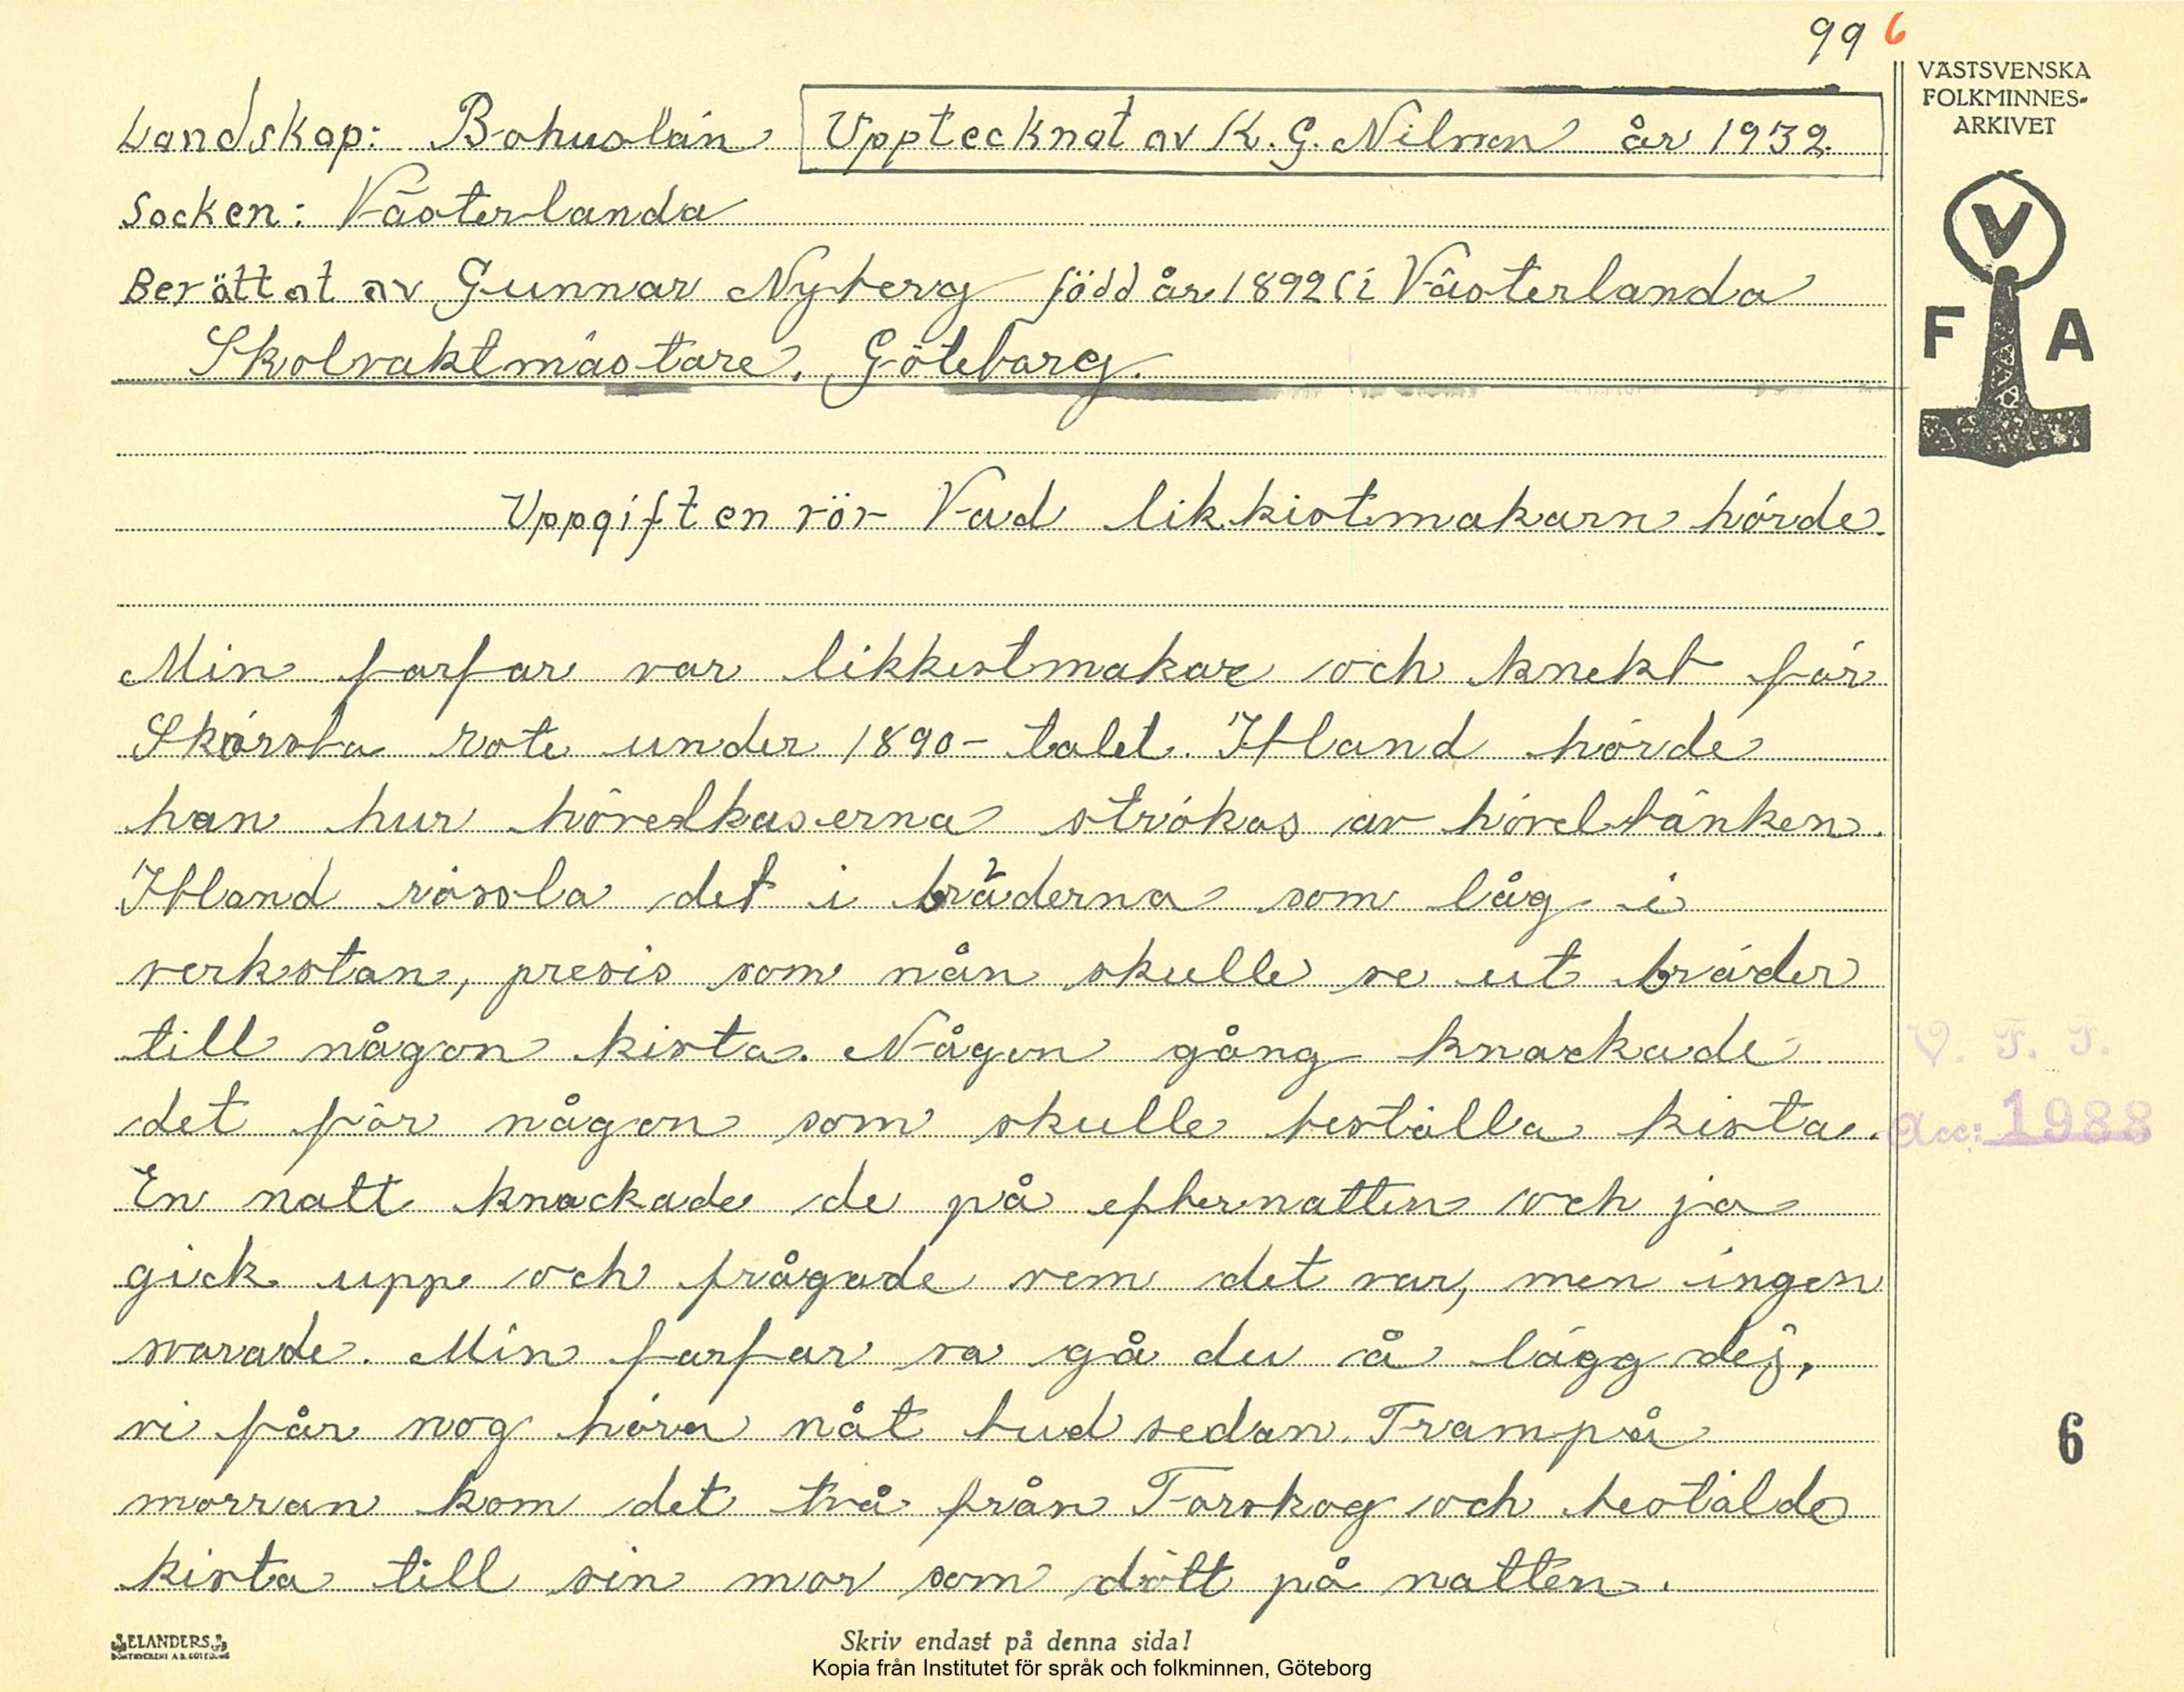 99 6
VÄSTSVENSKA
FOLKMINNES-
ARKIVET
V
F A
Landskap: Bohuslän Upptecknat av K. G. Nilson år 1932.
Socken: Västerlanda
Berättat av Gunnar Nyberg född år 1892 i Västerlanda
Skolvaktmästare. Göteborg.
Uppgiften rör Vad likkistmakarn hörde.
Min farfar var likkistmakare och knekt för
rote under 1890-talet. Ibland hörde
han hur hövelkaserna strökas av hövelbänken.
Ibland rössla det i bräderna som låg i
verkstan, presis som nån skulle se ut bräder
till någon kista. Någon gång knackade
det för någon som skulle beställa kista.
En natt knackade de på efternatten och ja
gick upp och frågade vem det var, men ingen
svarade. Min farfar sa gå du å lägg dej,
vi får nog höra nåt bud sedan. Frampå
morran kom det två från Forskog och bestälde
kista till sin mor som dött på natten.
V. F. F.
Acc: 1988
6
ELANDERS
BOKTRYCKERI A.B. GÖTEBORG
Skriv endast på denna sida!
Kopia från Institutet för språk och folkminnen, Göteborg